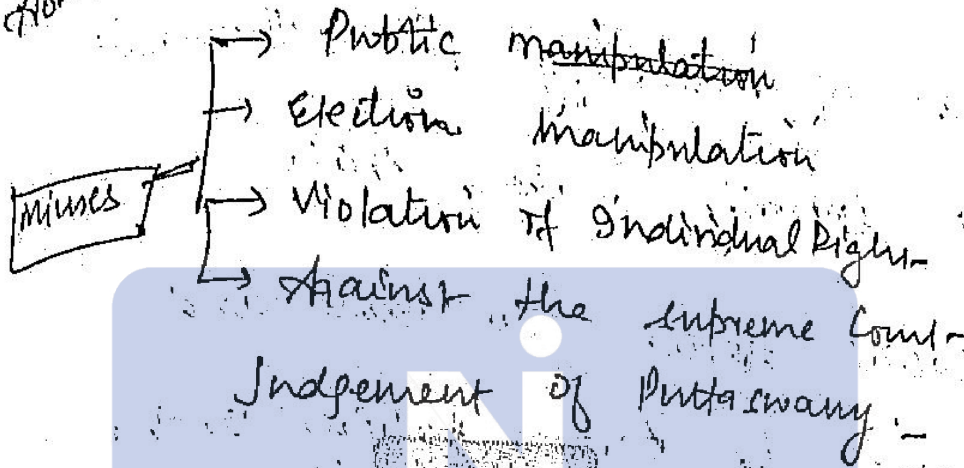 Public manipulation
Election manipulation
Misuses
Violation of Individual Right
Against the supreme Court
Judgement of Puttaswamy.